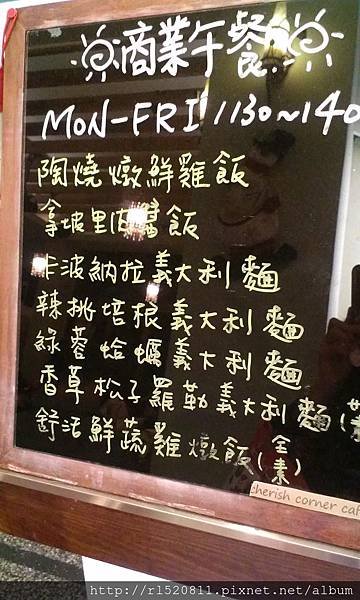 商業午餐
MON-FRI 1130~140
陶燒燉鮮雞飯
拿坡里肉醬飯
卡波納拉義大利麵
辣挑培根義大利麵
綠蓉蛤蠣義大利麵
香草松子羅勒義大利麵(
舒活鮮蔬雞燉飯(全素)
cherish corner caf
http://r1520811.pixnet.net/album